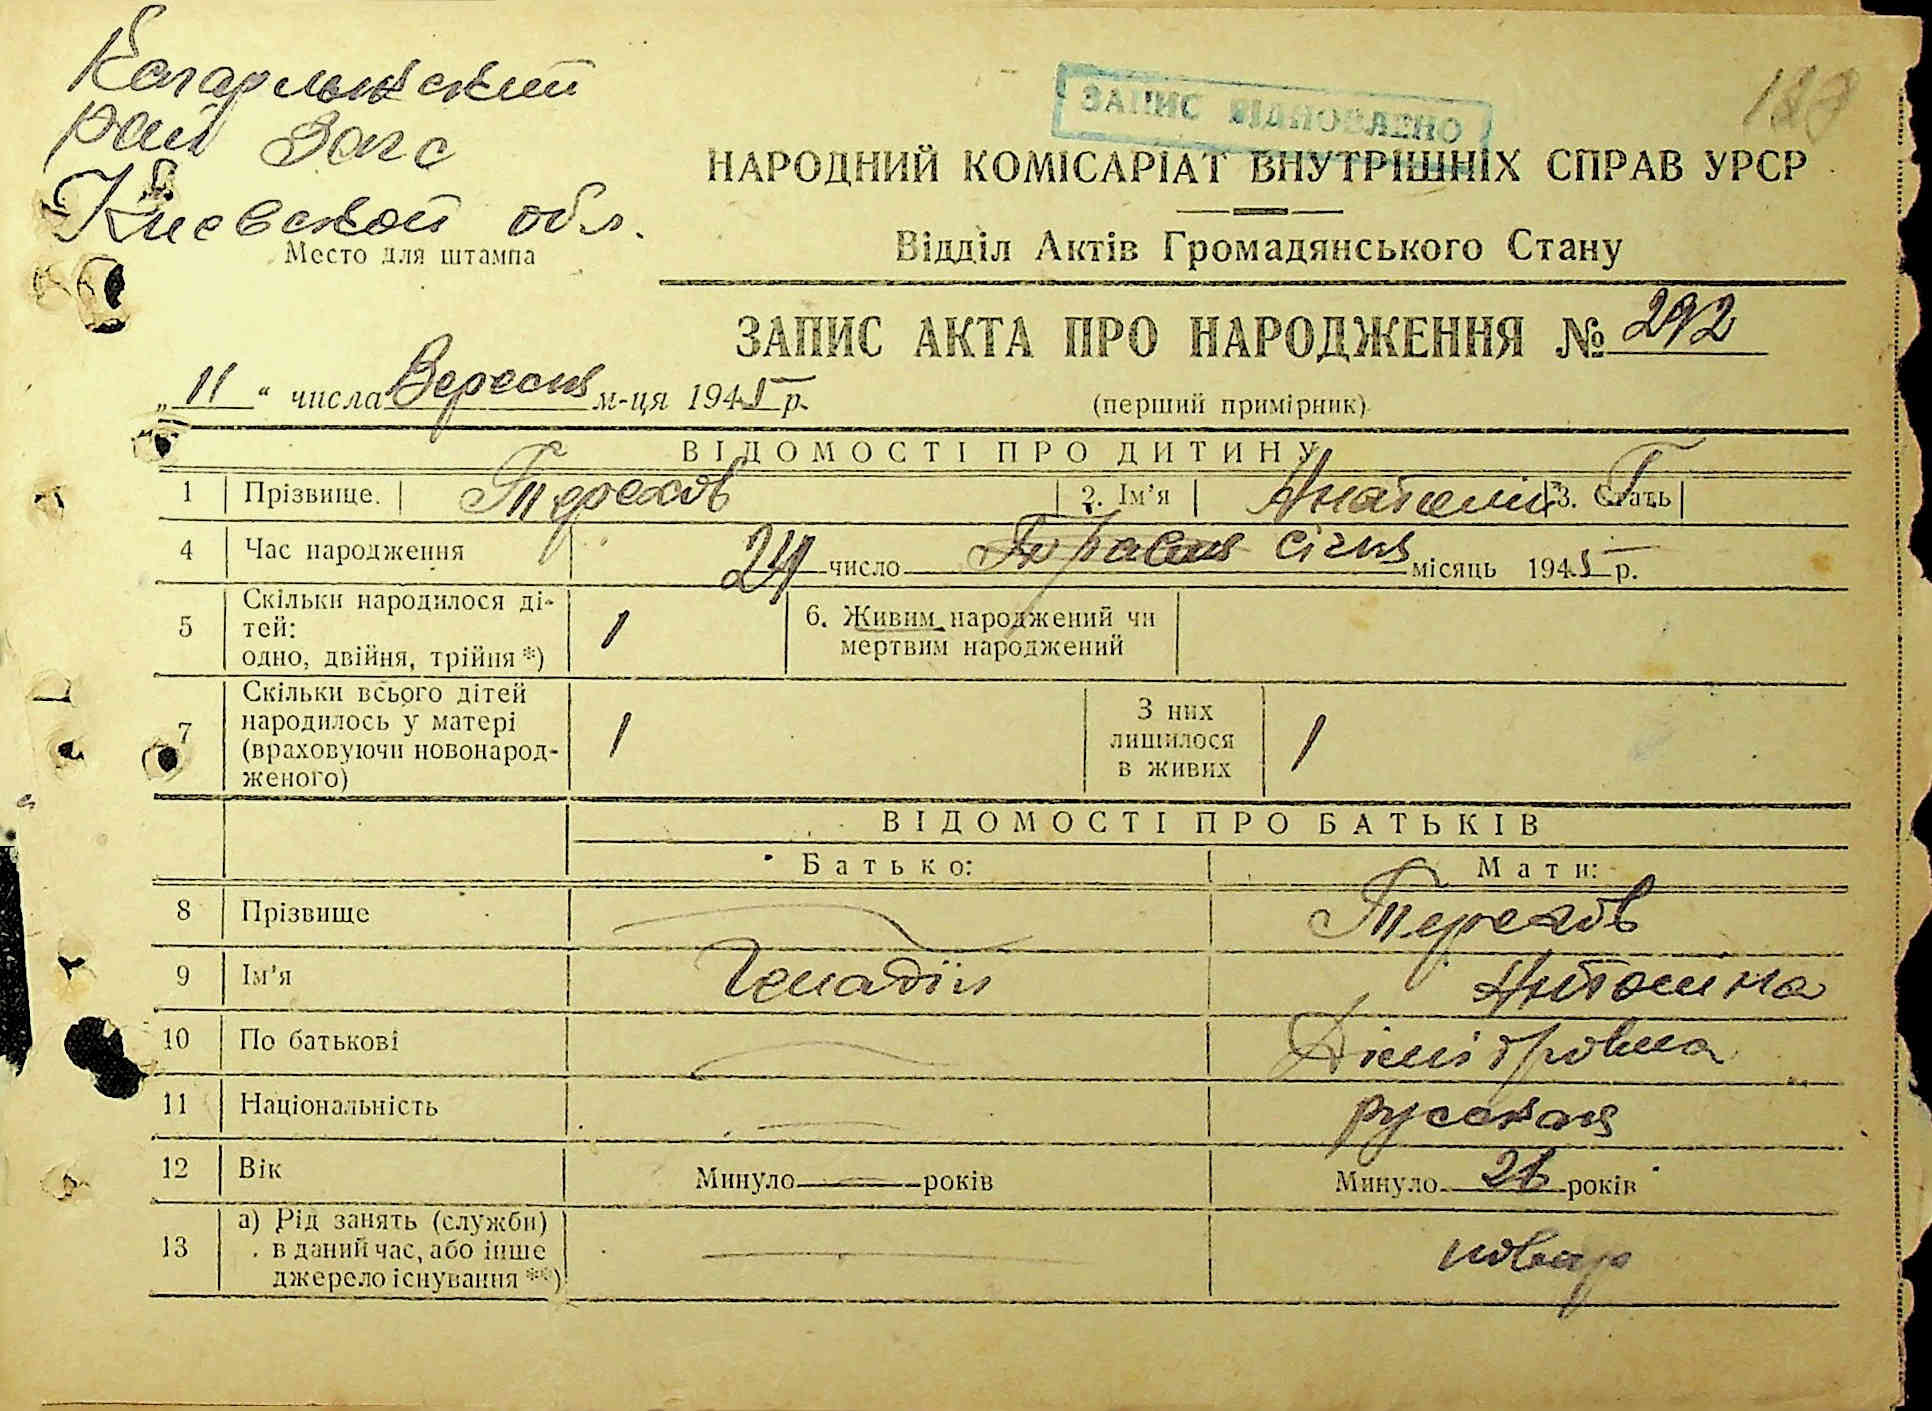 Кагарлыкский
рай Загс
Киевской обл.
Место для штампа
ЗАПИС ВІДНОВЛЕНО
188
НАРОДНИЙ КОМІСАРІАТ ВНУТРІШНІХ СПРАВ УРСР
Відділ Актів Громадянського Стану
ЗАПИС АКТА ПРО НАРОДЖЕННЯ № 292
„11“ числа Вересня м-ця 1945 р.
(перший примірник)
ВІДОМОСТІ ПРО ДИТИНУ
1 Прізвище. Терехов 2. Ім'я Анатолий 3. Стать
4 Час народження 24 число січня місяць 1945 р.
5 Скільки народилося ді-
тей:
одно, двійня, трійня *) 1
6. Живим народжений чи
мертвим народжений
7 Скільки всього дітей
народилось у матері
(враховуючи новонарод-
женого) 1
З них
лишилося
в живих 1
ВІДОМОСТІ ПРО БАТЬКІВ
Батько: Мати:
8 Прізвище Терехов
9 Ім'я Генадій Антоніна
10 По батькові Дімітровна
11 Національність русская
12 Вік Минуло — років Минуло років
13 а) Рід занять (служби)
в даний час, або інше
джерело існування **) повар